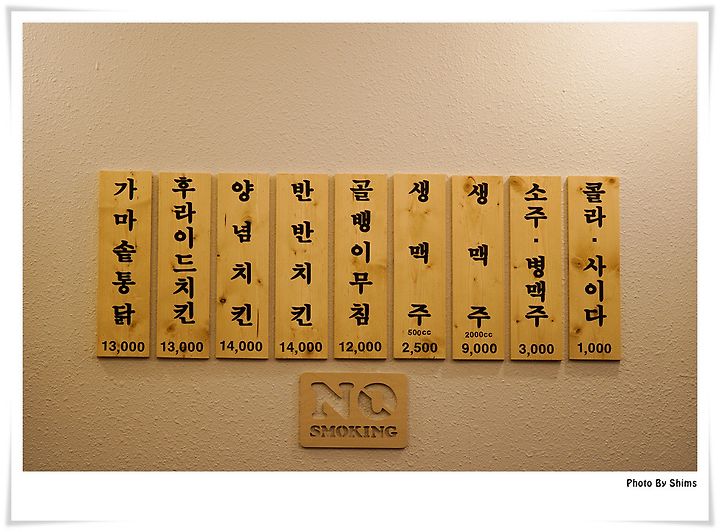 가마솥통닭
13,000
후라이드치킨
13,000
양념치킨
14,000
반반치킨
14,000
골뱅이무침
12,000
생맥주
500cc
2,500
생맥주
2000cc
9,000
소주·병맥주
3,000
콜라·사이다
1,000
NO
SMOKING
Photo By Shims